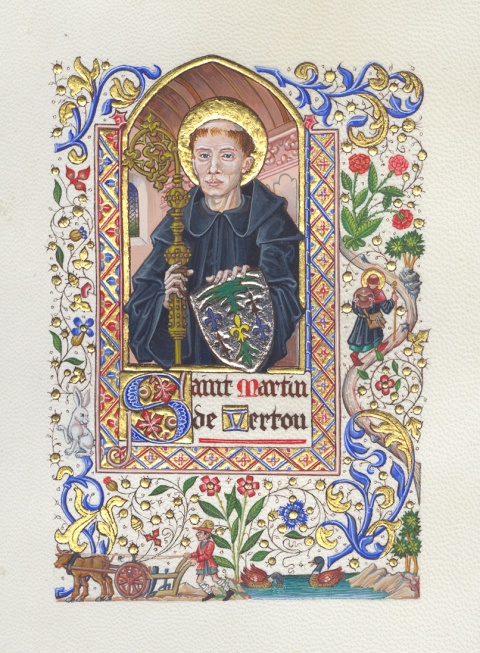 Saint Martin
de Vertou